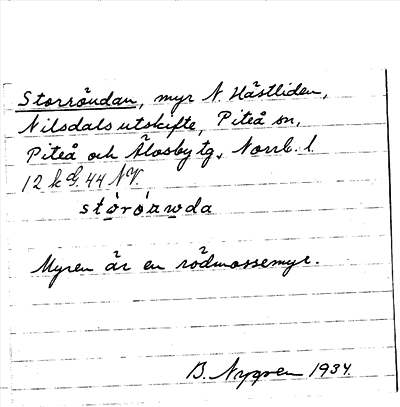 Storröudan, myr N. Hästliden,
Nilsdals utskifte, Piteå sn,
Piteå och Älvsby tg, Norrb. l.
12 k G. 44 NV.
stòróuwda
Myren är en rödmossemyr.
B. Nygren 1934